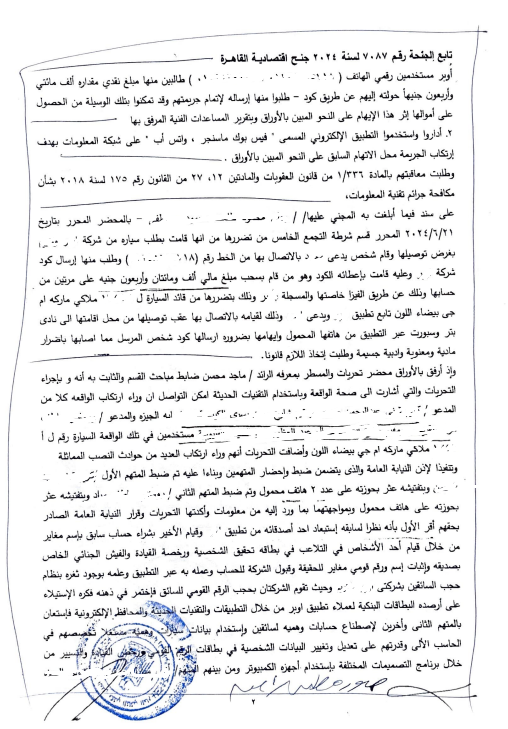 تابع الجنحة رقم ٧٠٨٧ لسنة ٢٠٢٤ جنح اقتصادية القاهرة
أوبر مستخدمين رقمي الهاتف ( ) طالبين منها مبلغ نقدي مقداره ألف مائتي
وأربعون جنيهاً حولته إليهم عن طريق كود – طلبوا منها إرساله لإتمام جريمتهم وقد تمكنوا بتلك الوسيلة من الحصول
على أموالها إثر هذا الإيهام على النحو المبين بالأوراق وبتقرير المساعدات الفنية المرفق بها
٢. أداروا واستخدموا التطبيق الإلكتروني المسمى " فيس بوك ماسنجر ، واتس أب " على شبكة المعلومات بهدف
إرتكاب الجريمة محل الاتهام السابق على النحو المبين بالأوراق .
وطلبت معاقبتهم بالمادة ١/٣٣٦ من قانون العقوبات والمادتين ١٢، ٢٧ من القانون رقم ١٧٥ لسنة ٢٠١٨ بشأن
مكافحة جرائم تقنية المعلومات،
على سند فيما أبلغت به المجني عليها/ – بالمحضر المحرر بتاريخ
٢٠٢٤/٦/٢١ المحرر قسم شرطة التجمع الخامس من تضررها من انها قامت بطلب سياره من شركة
بغرض توصيلها وقام شخص يدعى بالاتصال بها من الخط رقم ( ) وطلب منها إرسال كود
شركة وعليه قامت بإعطائه الكود وهو من قام بسحب مبلغ مالي ألف ومائتان وأربعون جنيه على مرتين من
حسابها وذلك عن طريق الفيزا خاصتها والمسجلة وذلك بتضررها من قائد السيارة ل ملاكي ماركه ام
جى بيضاء اللون تابع تطبيق ويدعى وذلك لقيامه بالاتصال بها عقب توصيلها من محل اقامتها الى نادى
بتر وسبورت عبر التطبيق من هاتفها المحمول وايهامها بضروره ارسالها كود شخص المرسل مما اصابها باضرار
مادية ومعنوية وادبية جسيمة وطلبت إتخاذ اللازم قانونا.
وإذ أرفق بالأوراق محضر تحريات والمسطر بمعرفه الرائد / ماجد محسن ضابط مباحث القسم والثابت به أنه و بإجراء
التحريات والتي أشارت الى صحة الواقعة وباستخدام التقنيات الحديثة امكن التواصل ان وراء ارتكاب الواقعه كلا من
المدعو / انه الجيزه والمدعو /
مستخدمين في تلك الواقعة السيارة رقم ل أ
ملاكي ماركه ام جي بيضاء اللون وأضافت التحريات أنهم وراء ارتكاب العديد من حوادث النصب المماثلة
وتنفيذا لإذن النيابة العامة والذى يتضمن ضبط وإحضار المتهمين وبناءا عليه تم ضبط المتهم الأول
وبتفتيشه عثر بحوزته على عدد ٢ هاتف محمول وتم ضبط المتهم الثاني / وبتفتيشه عثر
بحوزته على هاتف محمول وبمواجهتهما بما ورد إليه من معلومات وأكدتها التحريات وقرار النيابة العامة الصادر
بحقهم أقر الأول بأنه نظرا لسابقه إستبعاد احد أصدقائه من تطبيق وقيام الأخير بشراء حساب سابق بإسم مغاير
من خلال قيام أحد الأشخاص في التلاعب في بطاقه تحقيق الشخصية ورخصة القيادة والفيش الجنائي الخاص
بصديقه وإثبات إسم ورقم قومي مغاير للحقيقة وقبول الشركة للحساب وعمله به عبر التطبيق وعلمه بوجود ثغره بنظام
حجب السائقين بشركتى وحيث تقوم الشركتان بحجب الرقم القومي للسائق فإختمر في ذهنه فكره الإستيلاء
على أرصده البطاقات البنكية لعملاء تطبيق اوبر من خلال التطبيقات والتقنيات الحديثة والمحافظ الإلكترونية فإستعان
بالمتهم الثاني وأخرين لإصطناع حسابات وهميه لسائقين وإستخدام بيانات تخصصهم في
الحاسب الألى وقدرتهم على تعديل وتغيير البيانات الشخصية في بطاقات الرقم القومي من
خلال برنامج التصميمات المختلفة بإستخدام أجهزه الكمبيوتر ومن بينهم المتهم
٢